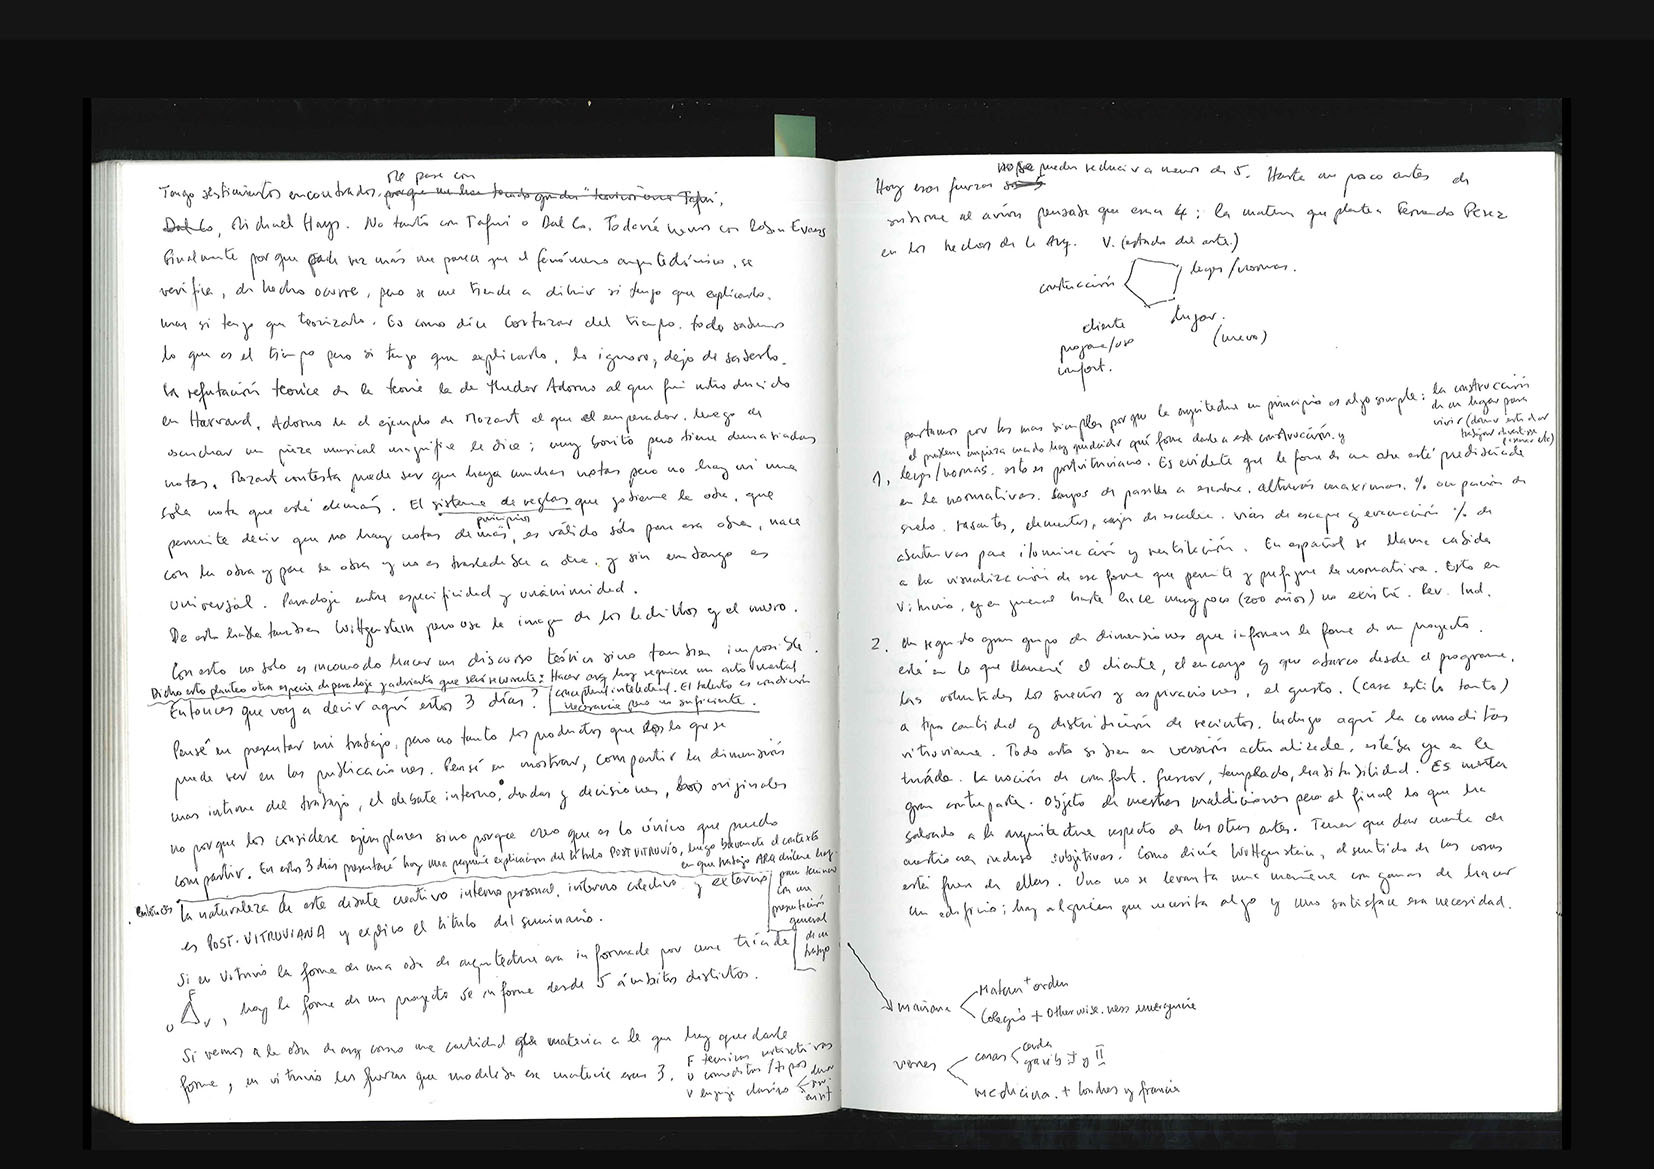 Me pasa con
Tengo sentimientos encontrados.
Dal Co, Michael Hays. No tanto con Tafuri o Dal Co. Todavía menos con Robin Evans
Finalmente porque cada vez más me parece que el fenómeno arquitectónico, se
verifica, de hecho ocurre, pero se me tiende a diluir si tengo que explicarlo.
mas si tengo que teorizarlo. Es como dice Cortazar del tiempo. todos sabemos
lo que es el tiempo pero si tengo que explicarlo, lo ignoro, dejo de saberlo.
La refutación teorica de la teoría la da Theodor Adorno al que fui introducido
en Harvard. Adorno da el ejemplo de Mozart al que el emperador, luego de
escuchar una pieza musical magnífica le dice: muy bonito pero tiene demasiadas
notas. Mozart contesta puede ser que haya muchas notas pero no hay ni una
sola nota que esté demás. El sistema de reglas que gobierna la obra, que
principios
permite decir que no hay notas demás, es válido sólo para esa obra, nace
con la obra y para la obra y no es trasladable a otra. y sin embargo es
universal. Paradoja entre especificidad y unanimidad.
De esto habla tambien Wittgenstein pero usa la imagen de los ladrillos y el muro.
Con esto no solo es incomodo hacer un discurso teórico sino tambien imposible.
Dicho esto planteo otra especie de paradoja y advierto que seré recurrente: Hacer arq hoy requiere un acto mental
conceptual intelectual. El talento es condición
necesaria pero no suficiente.
Entonces que voy a decir aquí estos 3 días?
Pensé en presentar mi trabajo, pero no tanto los productos que es lo que se
puede ver en las publicaciones. Pensé en mostrar, compartir la dimensión
mas intima del trabajo, el debate interno, dudas y decisiones, los originales
no porque los considere ejemplares sino porque creo que es lo único que puedo
compartir. En estos 3 días presentaré hoy una pequeña explicacion del título POSTVITRUVIO, luego brevemente el contexto
en que trabajo ARQ chilena hoy.
para terminar
con una
presentación
general
de mi
trabajo
Entonces la naturaleza de este debate creativo interno personal, interno colectivo y externo
es POST-VITRUVIANA y explico el título del seminario.
Si en Vitruvio la forma de una obra de arquitectura era informada por una tríada
F
U V, hoy la forma de un proyecto se informa desde 5 ámbitos distintos.
Si vemos a la obra de arq como una cantidad de materia a la que hay que darle
forma, en vitruvio las fuerzas que modelaban esa materia eran 3.
F tecnicas constructivas
U comoditas / tipos
V lenguaje clasico
Hoy esas fuerzas no se pueden reducir a menos de 5. Hasta un poco antes de
subirme al avión pensaba que eran 4: la materia que plantea Fernando Perez
en los hechos de la Arq. V. (estado del arte.)
construcción
leyes/normas.
lugar.
(nuevo)
cliente
programa/uso
confort.
partamos por las mas simples porque la arquitectura en principio es algo simple: la construcción
de un lugar para
vivir (dormir estudiar
trabajar divertirse
pensar etc)
el problema empieza cuando hay que decidir qué forma darle a esta construcción. y
1. leyes/normas. esto es postvitruviano. Es evidente que la forma de una obra está predibujada
en la normativa. Largos de pasillo a escalera. alturas maximas. % ocupación de
suelo. rasantes, cajas de escalera. vias de escape y evacuación % de
aberturas para iluminación y ventilación. En español se llama cabida
a la visualización de esa forma que permite y prefigura la normativa. Esto en
Vitruvio, y en general hasta hace muy poco (200 años) no existía. Rev. Ind.
2. Un segundo gran grupo de dimensiones que informan la forma de un proyecto.
está en lo que llamaré el cliente, el encargo y que abarca desde el programa,
las voluntades los sueños y aspiraciones, el gusto. (casa estilo tanto)
a tipo cantidad y distribución de recintos. Incluyo aquí la comoditas
vitruviana. Todo esto si bien en versión actualizada, estaba ya en la
tríada. La noción de confort. frescor, templado, habitabilidad. Es nuestra
gran contraparte. Objeto de nuestras maldiciones pero al final lo que ha
salvado a la arquitectura respecto de las otras artes. Tener que dar cuenta de
cuestiones incluso subjetivas. Como diría Wittgenstein, el sentido de las cosas
está fuera de ellas. Uno no se levanta una mañana con ganas de hacer
un edificio; hay alguien que necesita algo y uno satisface esa necesidad.
mañana
Matem + orden
Colegio + Otherwise-ness emergencia
viernes
casas
garib. I y II
medicina. + londres y francia